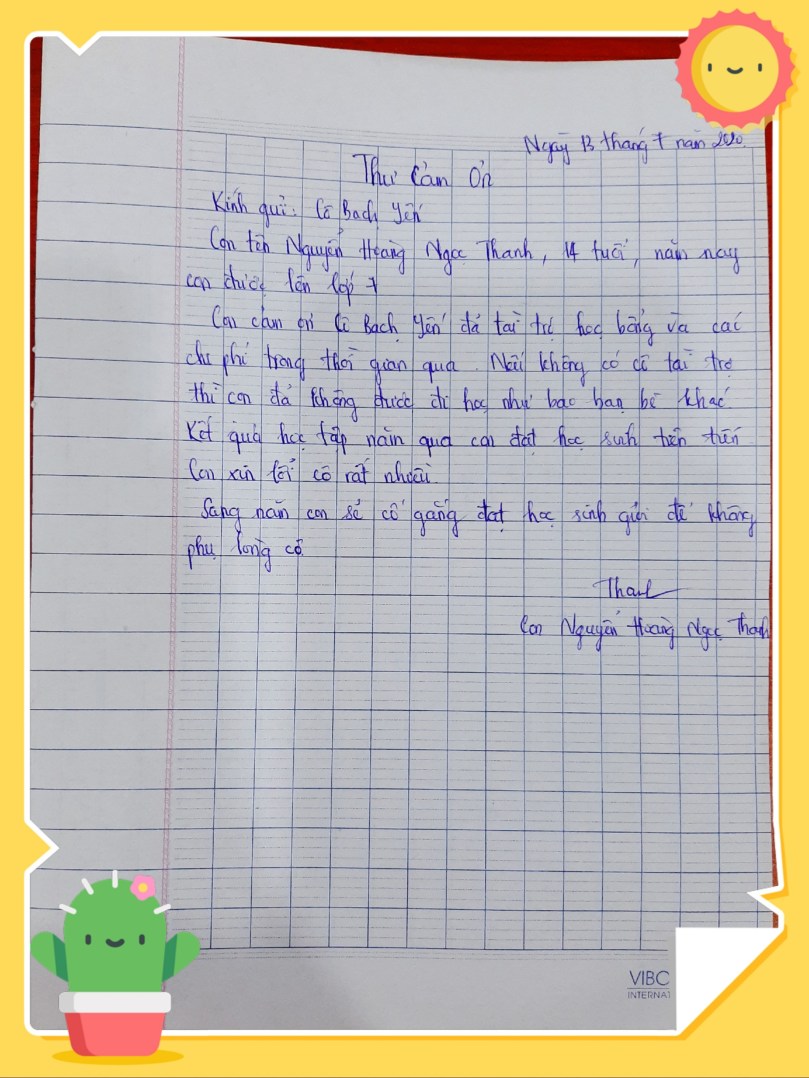 Ngày 13 tháng 7 năm 2020.
Thư Cảm Ơn
Kính gửi: Cô Bạch Yến
Con tên Nguyễn Hoàng Ngọc Thanh, 14 tuổi, năm nay
con được lên lớp 7
Con cảm ơn Cô Bạch Yến đã tài trợ học bổng và các
chi phí trong thời gian qua. Nếu không có cô tài trợ
thì con đã không được đi học như bao bạn bè khác.
Kết quả học tập năm qua con đạt học sinh tiên tiến
Con xin lỗi cô rất nhiều.
Sang năm con sẽ cố gắng đạt học sinh giỏi để không
phụ lòng cô
Thanh
Con Nguyễn Hoàng Ngọc Thanh
VIBC
INTERNAT